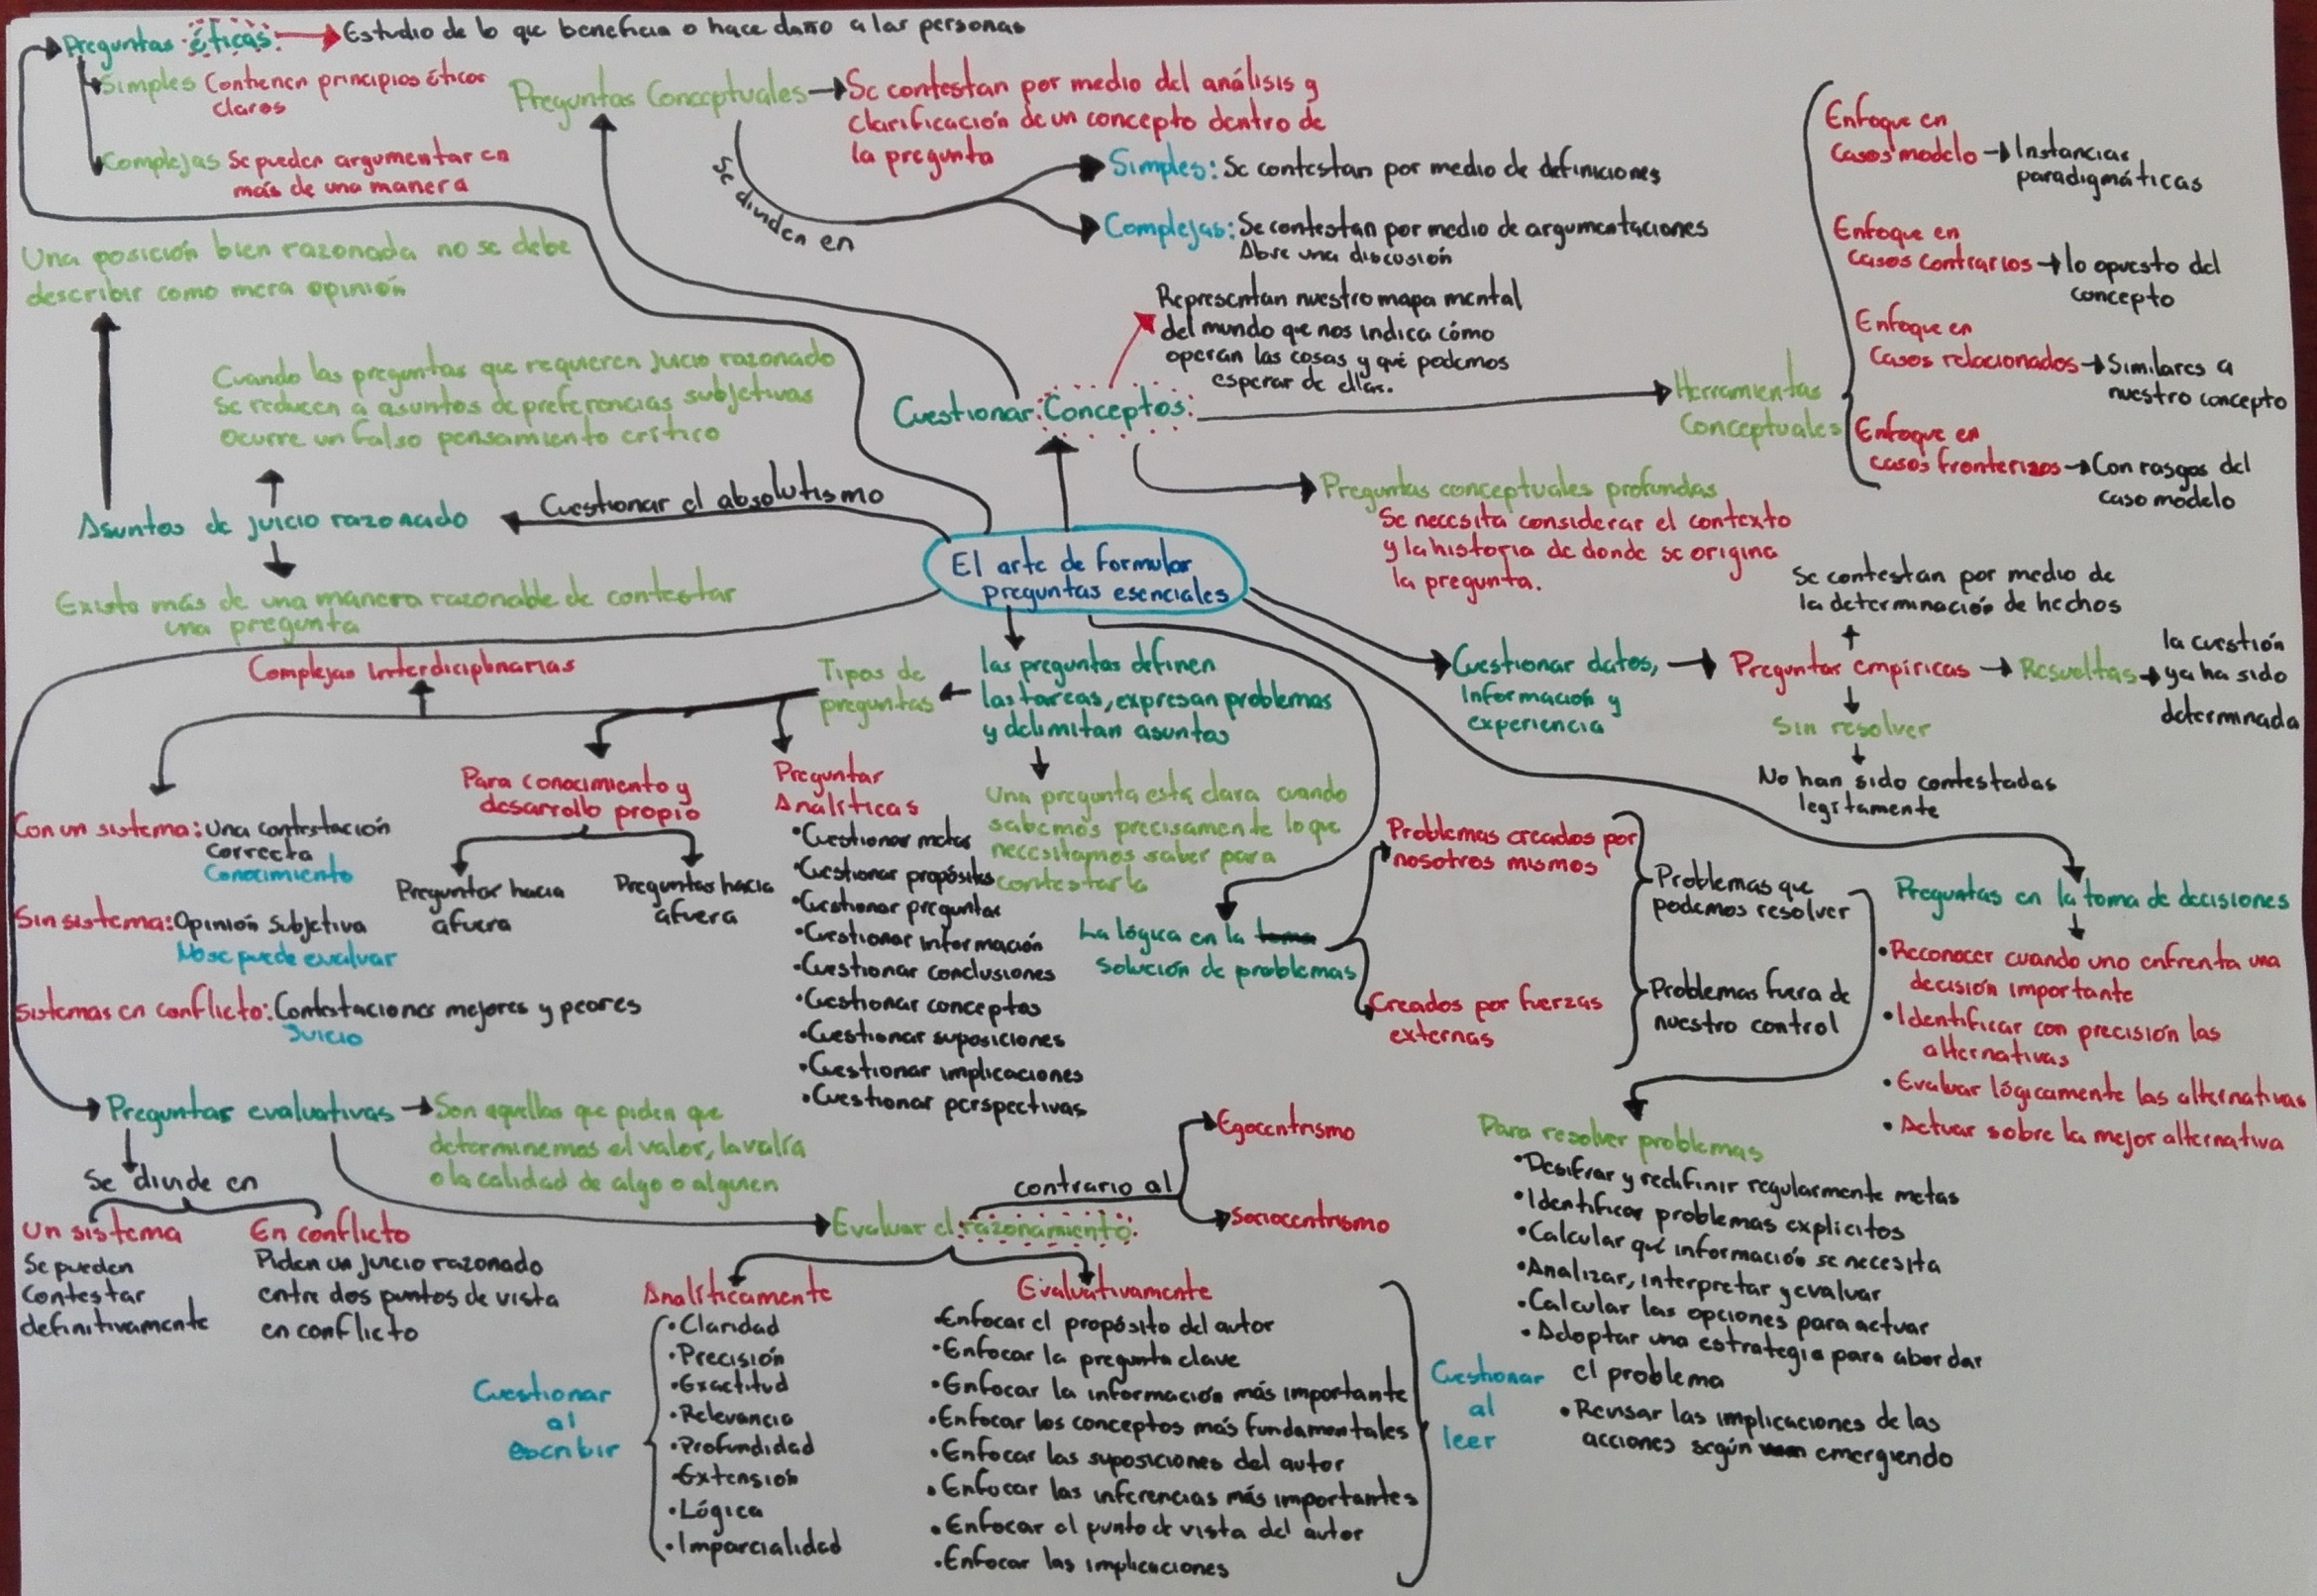 Preguntas éticas
Estudio de lo que beneficia o hace daño a las personas
Simples Contienen principios éticos
claros
Complejas Se pueden argumentar en
más de una manera
Preguntas Conceptuales
Se contestan por medio del análisis y
clarificación de un concepto dentro de
la pregunta
Se dividen en
Simples: Se contestan por medio de definiciones
Complejas: Se contestan por medio de argumentaciones
Abre una discusión
Enfoque en
Casos modelo
Instancias
paradigmáticas
Enfoque en
casos contrarios
lo opuesto del
concepto
Enfoque en
Casos relacionados
Similares a
nuestro concepto
Enfoque en
casos fronterizos
Con rasgos del
caso modelo
Herramientas
Conceptuales
Una posición bien razonada no se debe
describir como mera opinión
Representan nuestro mapa mental
del mundo que nos indica cómo
operan las cosas y qué podemos
esperar de ellas.
Cuestionar Conceptos
Cuando las preguntas que requieren juicio razonado
se reducen a asuntos de preferencias subjetivas
ocurre un falso pensamiento crítico
Asuntos de juicio razonado
Cuestionar el absolutismo
Existe más de una manera razonable de contestar
una pregunta
Preguntas conceptuales profundas
Se necesita considerar el contexto
y la historia de donde se origina
la pregunta.
El arte de formular
preguntas esenciales
Se contestan por medio de
la determinación de hechos
Cuestionar datos,
Información y
experiencia
Preguntas empíricas
Resueltas
la cuestión
ya ha sido
determinada
Sin resolver
No han sido contestadas
legítamente
Complejas Interdiciplinarias
Tipos de
preguntas
las preguntas definen
las tareas, expresan problemas
y delimitan asuntos
Una pregunta está clara cuando
sabemos precisamente lo que
necesitamos saber para
contestarla
Con un sistema: Una contestación
correcta
Conocimiento
Sin sistema: Opinión Subjetiva
No se puede evaluar
Sistemas en conflicto: Contestaciones mejores y peores
Juicio
Para conocimiento y
desarrollo propio
Preguntar hacia
afuera
Preguntas hacia
afuera
Preguntar
Analíticas
•Cuestionar metas
•Cuestionar propósitos
•Cuestionar preguntas
•Cuestionar información
•Cuestionar conclusiones
•Cuestionar conceptos
•Cuestionar suposiciones
•Cuestionar implicaciones
•Cuestionar perspectivas
La lógica en la
solución de problemas
Problemas creados por
nosotros mismos
Creados por fuerzas
externas
Problemas que
podemos resolver
Problemas fuera de
nuestro control
Preguntas en la toma de decisiones
•Reconocer cuando uno enfrenta una
decisión importante
•Identificar con precisión las
alternativas
•Evaluar lógicamente las alternativas
•Actuar sobre la mejor alternativa
Preguntas evaluativas
Son aquellas que piden que
determinemos el valor, la valía
o la calidad de algo o alguien
Se divide en
Un sistema
Se pueden
Contestar
definitivamente
En conflicto
Piden un juicio razonado
entre dos puntos de vista
en conflicto
Evaluar el razonamiento
contrario al
Egocentrismo
Sociocentrismo
Analíticamente
•Claridad
•Precisión
•Exactitud
•Relevancia
•Profundidad
•Extensión
•Lógica
•Imparcialidad
Cuestionar
al
escribir
Evaluativamente
•Enfocar el propósito del autor
•Enfocar la pregunta clave
•Enfocar la información más importante
•Enfocar los conceptos más fundamentales
•Enfocar las suposiciones del autor
•Enfocar las inferencias más importantes
•Enfocar el punto de vista del autor
•Enfocar las implicaciones
Cuestionar
al
leer
Para resolver problemas
•Desifrar y redifinir regularmente metas
•Identificar problemas explícitos
•Calcular qué información se necesita
•Analizar, interpretar y evaluar
•Calcular las opciones para actuar
•Adoptar una estrategia para abordar
el problema
•Revisar las implicaciones de las
acciones según emergiendo